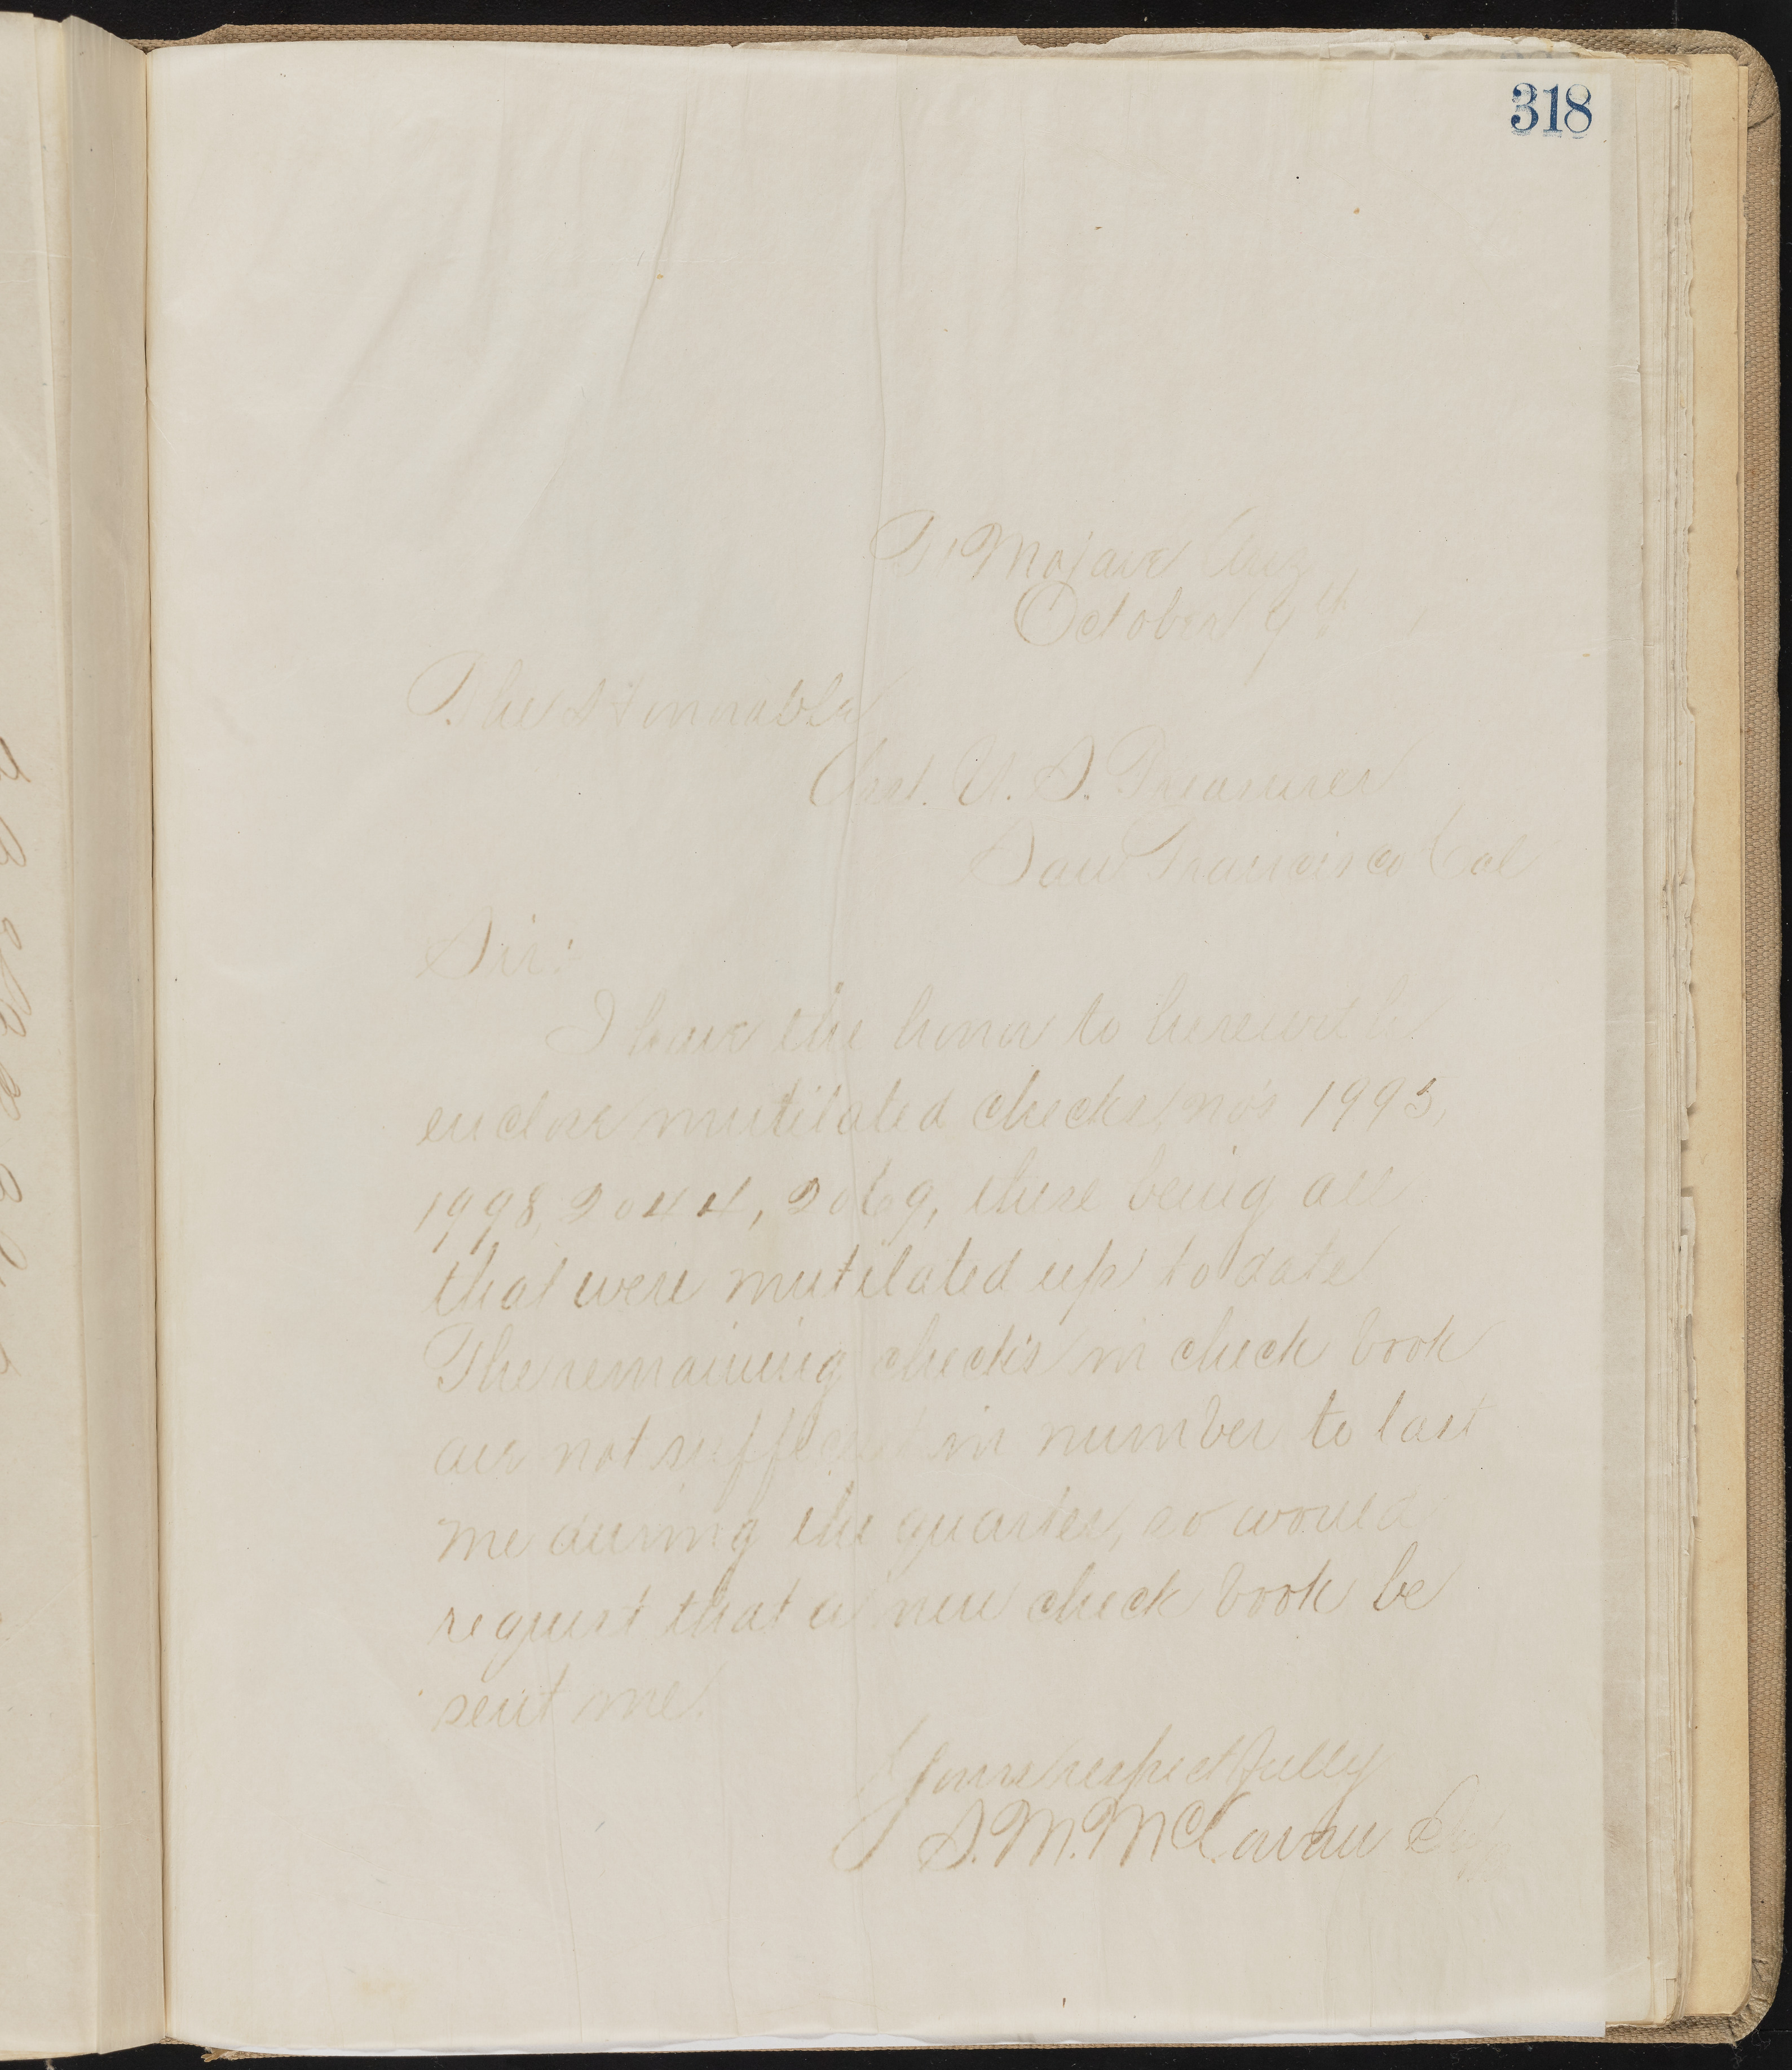 318
Ft Mojave Ariz
October 9th
The Honorable
Asst. U. S. Treasurer
San Francisco Cal
Sir:
I have the honor to herewith
enclose mutilated checks, no's 1995,
1998, 2044, 2069, these being all
that were mutilated up to date
The remaining checks in check book
are not sufficient in number to last
me during the quarter, so would
request that a new check book be
sent me.
Yours respectfully
S. M. McCowan Supt